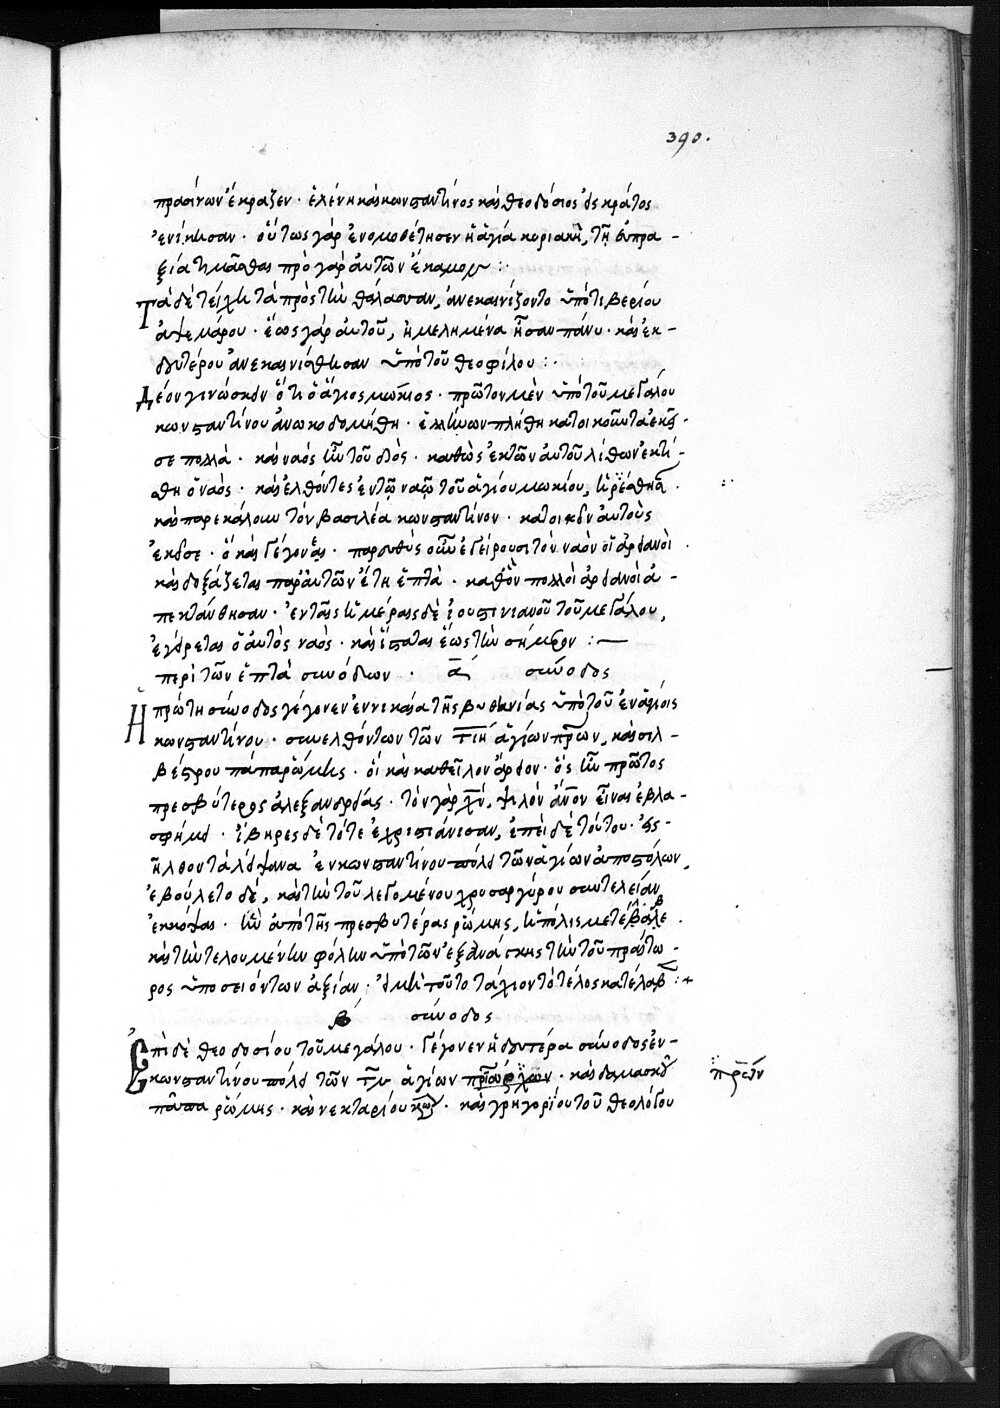 390.
πρασίνων ἔκραξεν · ἑλένη καὶ κωνσταντῖνος καὶ θεοδόσιος εἰς κράτος
ἐνίκησαν · οὕτως γὰρ ἐνομοθέτησεν ἡ ἁγία κυριακὴ, τῇ ἀπρα -
ξία τιμᾶσθαι πρὸ γὰρ αὐτῶν ἔκαμον :
Τὰ δὲ τείχη τὰ πρὸς τὴν θάλασσαν, ἀνεκαινίζοντο ὑπὸ τιβερίου
ἀψιμάρου · ἕως γὰρ αὐτοῦ, ἠμελημένα ἦσαν πάνυ · καὶ ἐκ -
δευτέρου ἀνεκαινίσθησαν ὑπὸ τοῦ θεοφίλου :
Δέον γινώσκειν ὅτι ὁ ἅγιος μώκιος · πρῶτον μὲν ὑπὸ τοῦ μεγάλου
κωνσταντίνου ἀνωκοδομήθη · ἑλλήνων πλήθη κατοικοῦντα ἐκεῖ -
σε πολλὰ · καὶ ναὸς ἦν τοῦ διὸς · καθὼς ἐκ τῶν αὐτοῦ λίθων ἐκτί -
σθη ὁ ναὸς · καὶ ἐλθόντες ἐν τῷ ναῷ τοῦ ἁγίου μωκίου,
καὶ παρεκάλουν τὸν βασιλέα κωνσταντῖνον · κατοικεῖν αὐτοὺς
ἐκεῖσε · ὃ καὶ γέγονεν · παρευθὺς οὖν ἐγείρουσι τὸν ναὸν οἱ ἀρειανοὶ
καὶ δοξάζεται παρ' αὐτῶν ἔτη ἑπτὰ · καθ' ὃν πολλοὶ ἀρειανοὶ ἀ -
πεκτάνθησαν · ἐν ταῖς ἡμέραις δὲ ἰουστινιανοῦ τοῦ μεγάλου,
ἐγείρεται ὁ αὐτὸς ναὸς · καὶ ἵσταται ἕως τὴν σήμερον :
περὶ τῶν ἑπτὰ συνόδων · α΄ σύνοδος
Ἡ πρώτη σύνοδος γέγονεν ἐν νικαία τῆς βιθυνίας ὑπὸ τοῦ ἐν ἁγίοις
κωνσταντίνου · συνελθόντων τῶν τιη΄ ἁγίων πρων, καὶ σιλ -
βέστρου πάπα ῥώμης · οἱ καὶ καθεῖλον ἄρειον · ὃς ἦν πρῶτος
πρεσβύτερος ἀλεξανδρείας · τὸν γὰρ χν, ψιλὸν ἄνον εἶναι ἐβλα -
σφήμει · ἴβηρες δὲ τότε ἐχριστιάνισαν, ἐπεὶ δὲ τούτου · εἰς -
ῆλθον τὰ λείψανα ἐν κωνσταντίνου πόλει τῶν ἁγίων ἀποστόλων,
ἐβούλετο δὲ, καὶ τὴν τοῦ λεγομένου χρυσαργύρου συντέλειαν
ἐκκόψαι · ἣν ἀπὸ τῆς πρεσβυτέρας ῥώμης, ἡ πόλις μετέβαλε .
καὶ τὴν τελουμένην φόλην ὑπὸ τῶν ἐξ ἀνάγκης τὴν τοῦ πραίτω -
ρος ὑποσειόντων ἀξίαν · εἰ μὴ τοῦτο τάχιον τὸ τέλος κατέλαβε :+
β΄ σύνοδος
Ἐπὶ δὲ θεοδοσίου τοῦ μεγάλου · γέγονεν ἡ δευτέρα σύνοδος ἐν -
κωνσταντίνου πόλει τῶν ρν ἁγίων · καὶ δαμασκοῦ πρων
πάπα ῥώμης · καὶ νεκταρίου κων · καὶ γρηγορίου τοῦ θεολόγου